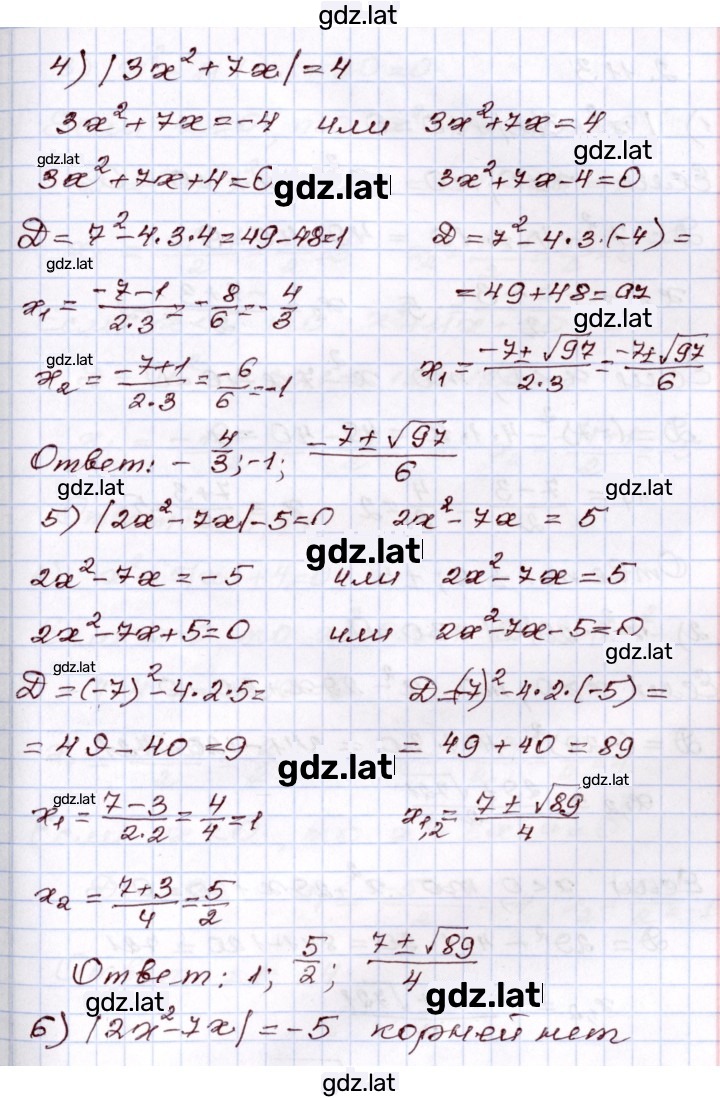 gdz.lat
4) |3x²+7x|=4
3x²+7x=-4 или 3x²+7x=4
gdz.lat gdz.lat
3x²+7x+4=0 gdz.lat 3x²+7x-4=0
D=7²-4·3·4=49-48=1 D=7²-4·3·(-4)=
gdz.lat
x₁=(-7-1)/(2·3)=-8/6=-4/3 =49+48=97
gdz.lat
x₂=(-7+1)/(2·3)=-6/6=-1 x₁=(-7±√97)/(2·3)=(-7±√97)/6
Ответ: -4/3; -1; (-7±√97)/6
gdz.lat gdz.lat
5) |2x²-7x|-5=0 2x²-7x=5
gdz.lat
2x²-7x=-5 или 2x²-7x=5
2x²-7x+5=0 или 2x²-7x-5=0
gdz.lat gdz.lat
D=(-7)²-4·2·5= D=(-7)²-4·2·(-5)=
=49-40=9 =49+40=89
gdz.lat
gdz.lat gdz.lat
x₁=(7-3)/(2·2)=4/4=1 x₁,₂=(7±√89)/4
x₂=(7+3)/4=5/2
Ответ: 1; 5/2; (7±√89)/4
gdz.lat gdz.lat
6) |2x²-7x|=-5 корней нет
gdz.lat